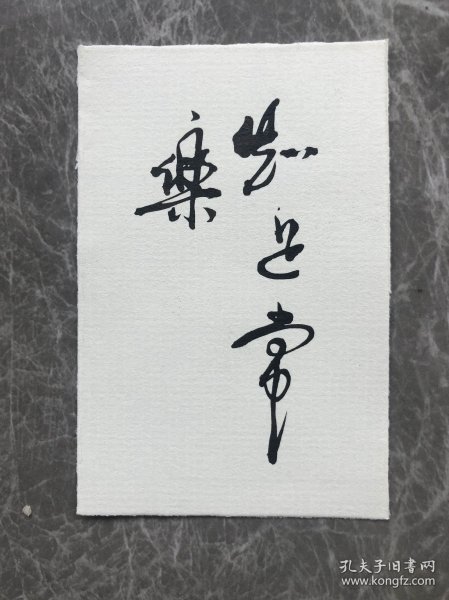 知足常
樂
孔夫子旧書网
www.kongfz.com